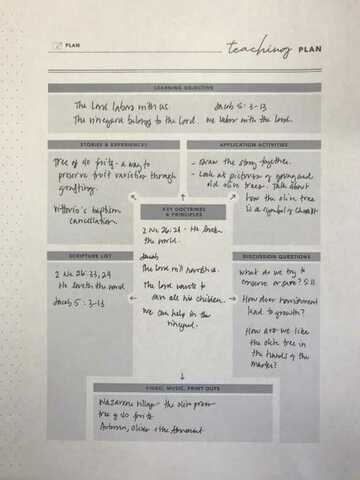 PLAN
teaching PLAN
LEARNING OBJECTIVE
The Lord labors with us. Jacob 5:3-13
The vineyard belongs to the Lord. We labor with the Lord.
STORIES & EXPERIENCES
Tree of 40 fruits - a way to
preserve fruit varieties through
grafting.
Vittorio's baptism
cancellation
APPLICATION ACTIVITIES
- Draw the story together.
- Look at pictures of young and
old olive trees. Talk about
how the olive tree
is a symbol of Christ
KEY DOCTRINES
& PRINCIPLES
2 Ne 26:24 - He loveth
the world.
Jacob
The Lord will nourish us.
The Lord wants to
save all his children.
We can help in the
vineyard.
SCRIPTURE LIST
2 Ne 26:33, 24
He loveth the world
Jacob 5:3-13
DISCUSSION QUESTIONS
What do we try to
conserve or save? 5:11
How does nourishment
lead to growth?
How are we like
the olive tree in
the hands of the
master?
VIDEO, MUSIC, PRINT OUTS
Nazarene Village - the olive press
tree of 40 fruits
Autumn, Olives & the Atonement